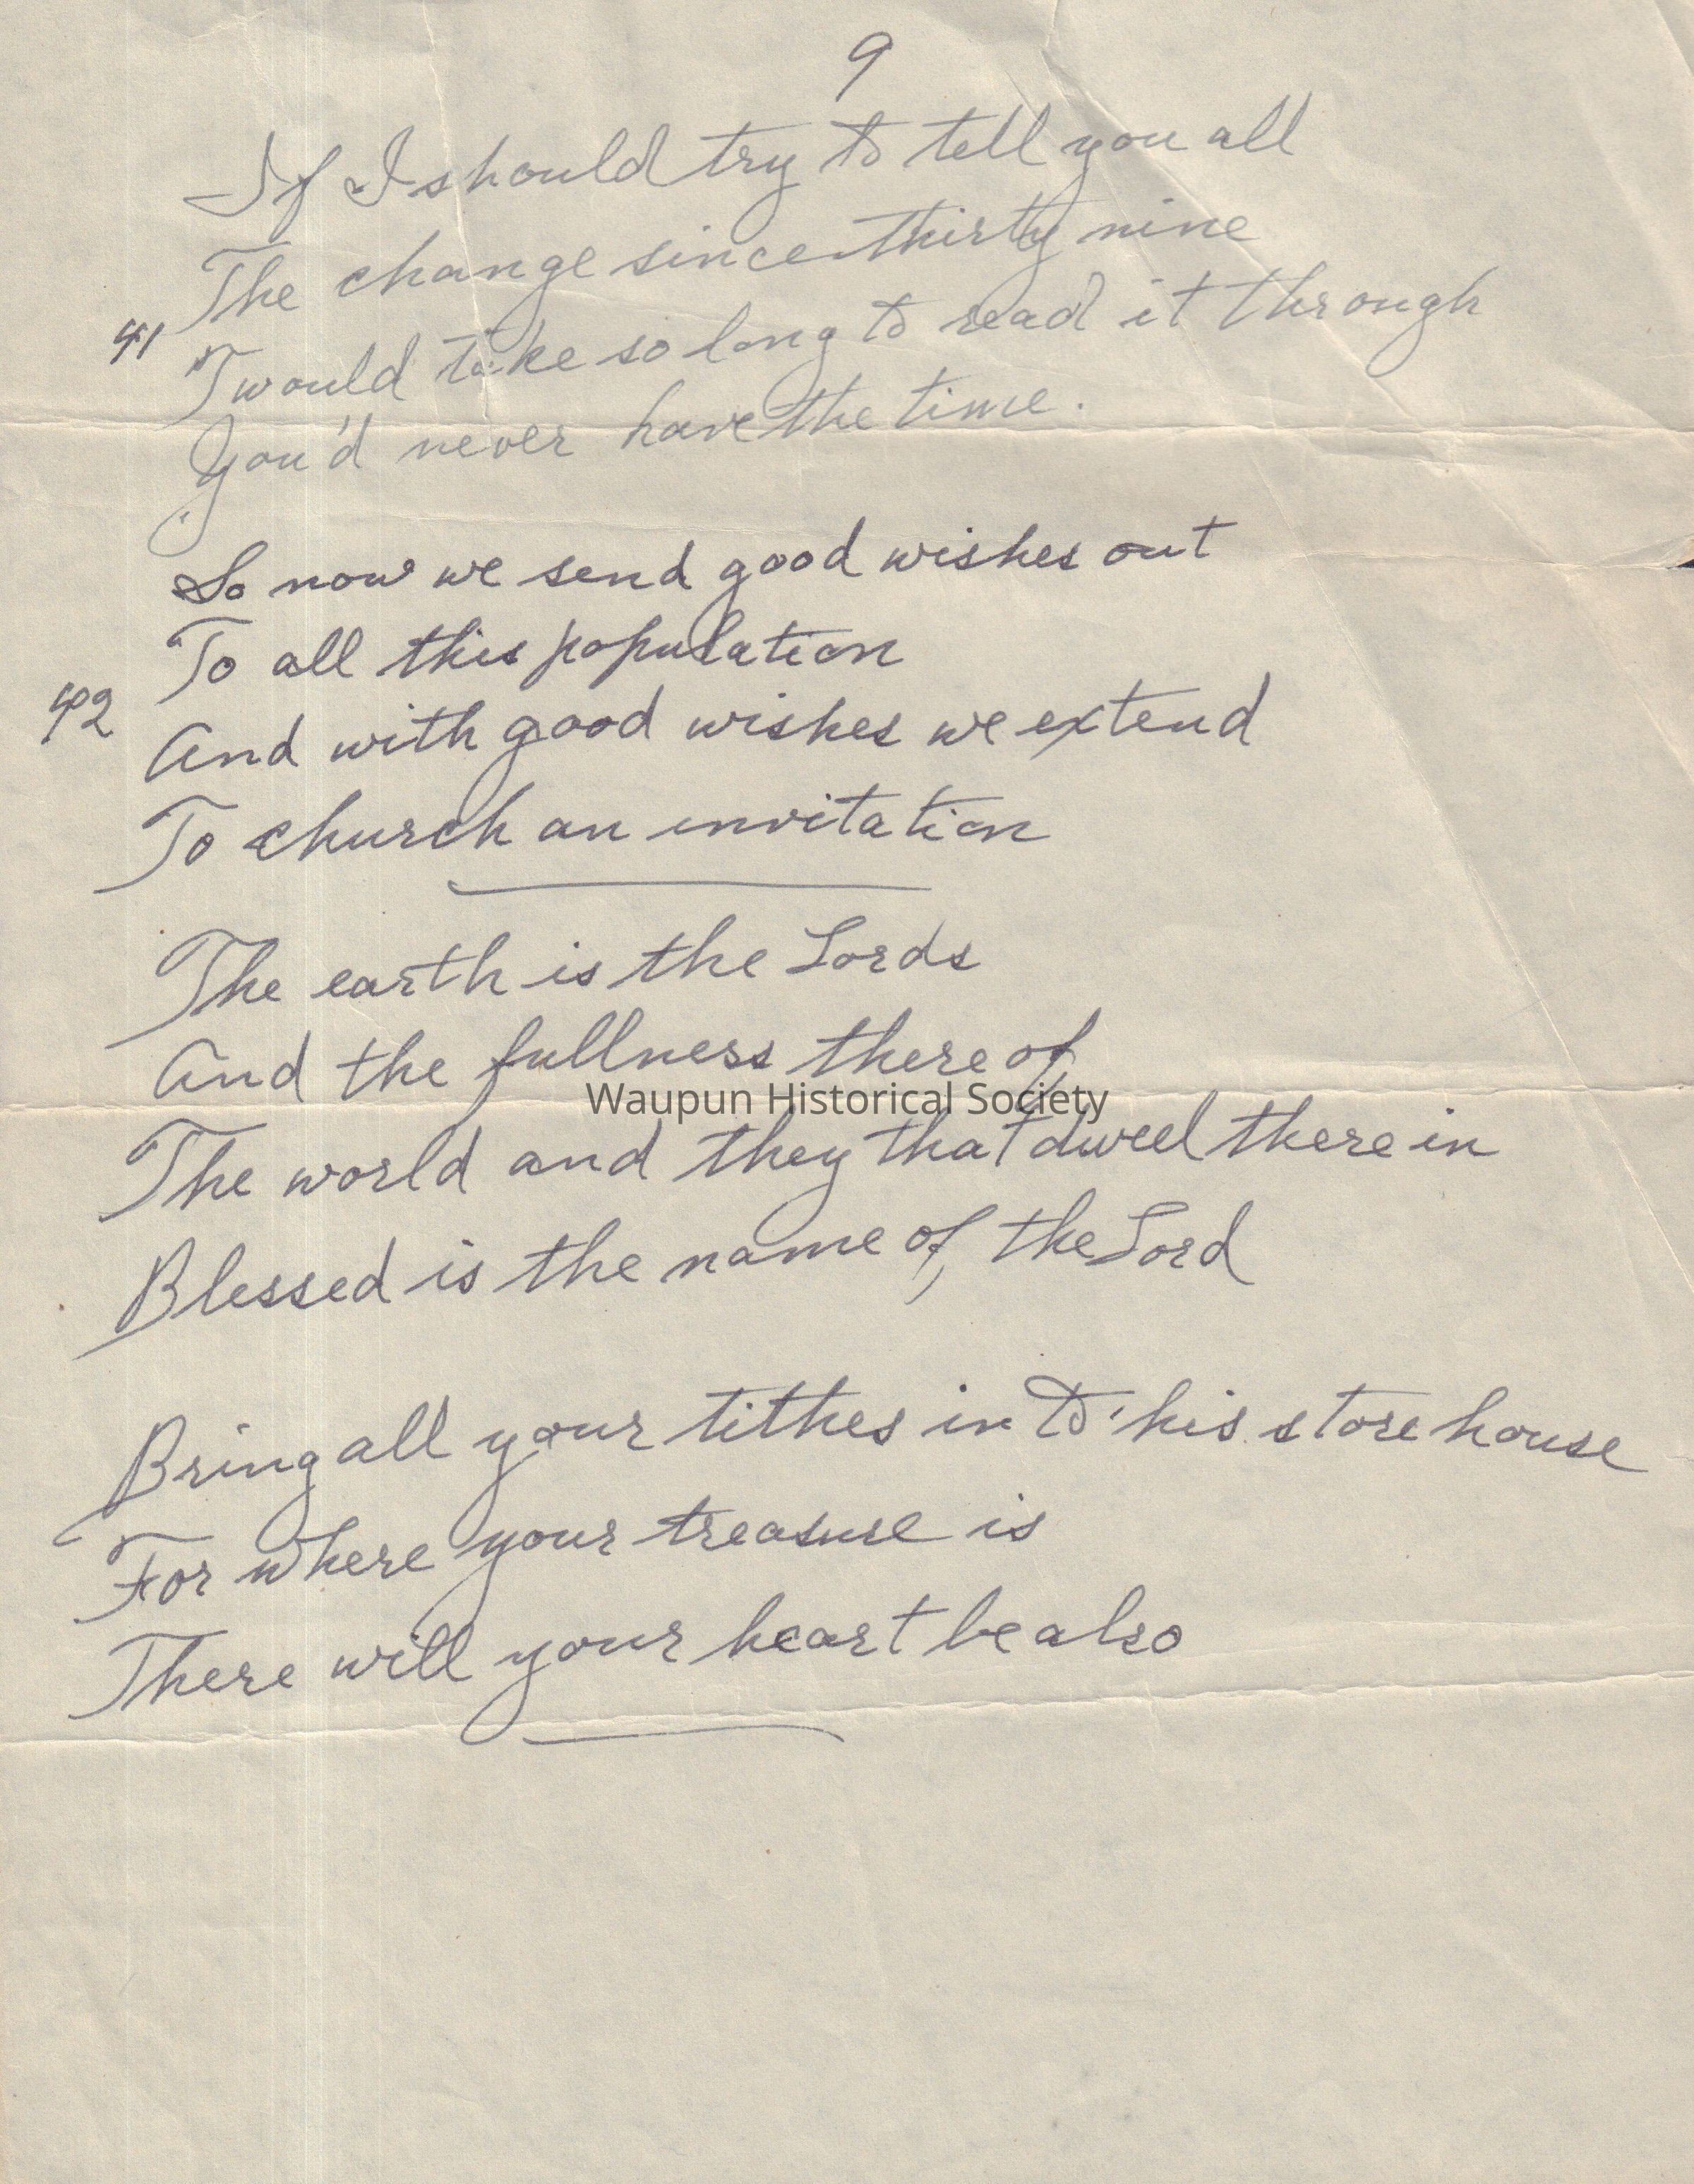 9
If I should try to tell you all
The change since thirty nine
41
Twould take so long to read it through
You'd never have the time.
So now we send good wishes out
To all this population
42
And with good wishes we extend
To church an invitation
The earth is the Lords
And the fullness there of
Waupun Historical Society
The world and they that dwell there in
Blessed is the name of the Lord
Bring all your tithes in to his store house
For where your treasure is
There will your heart be also